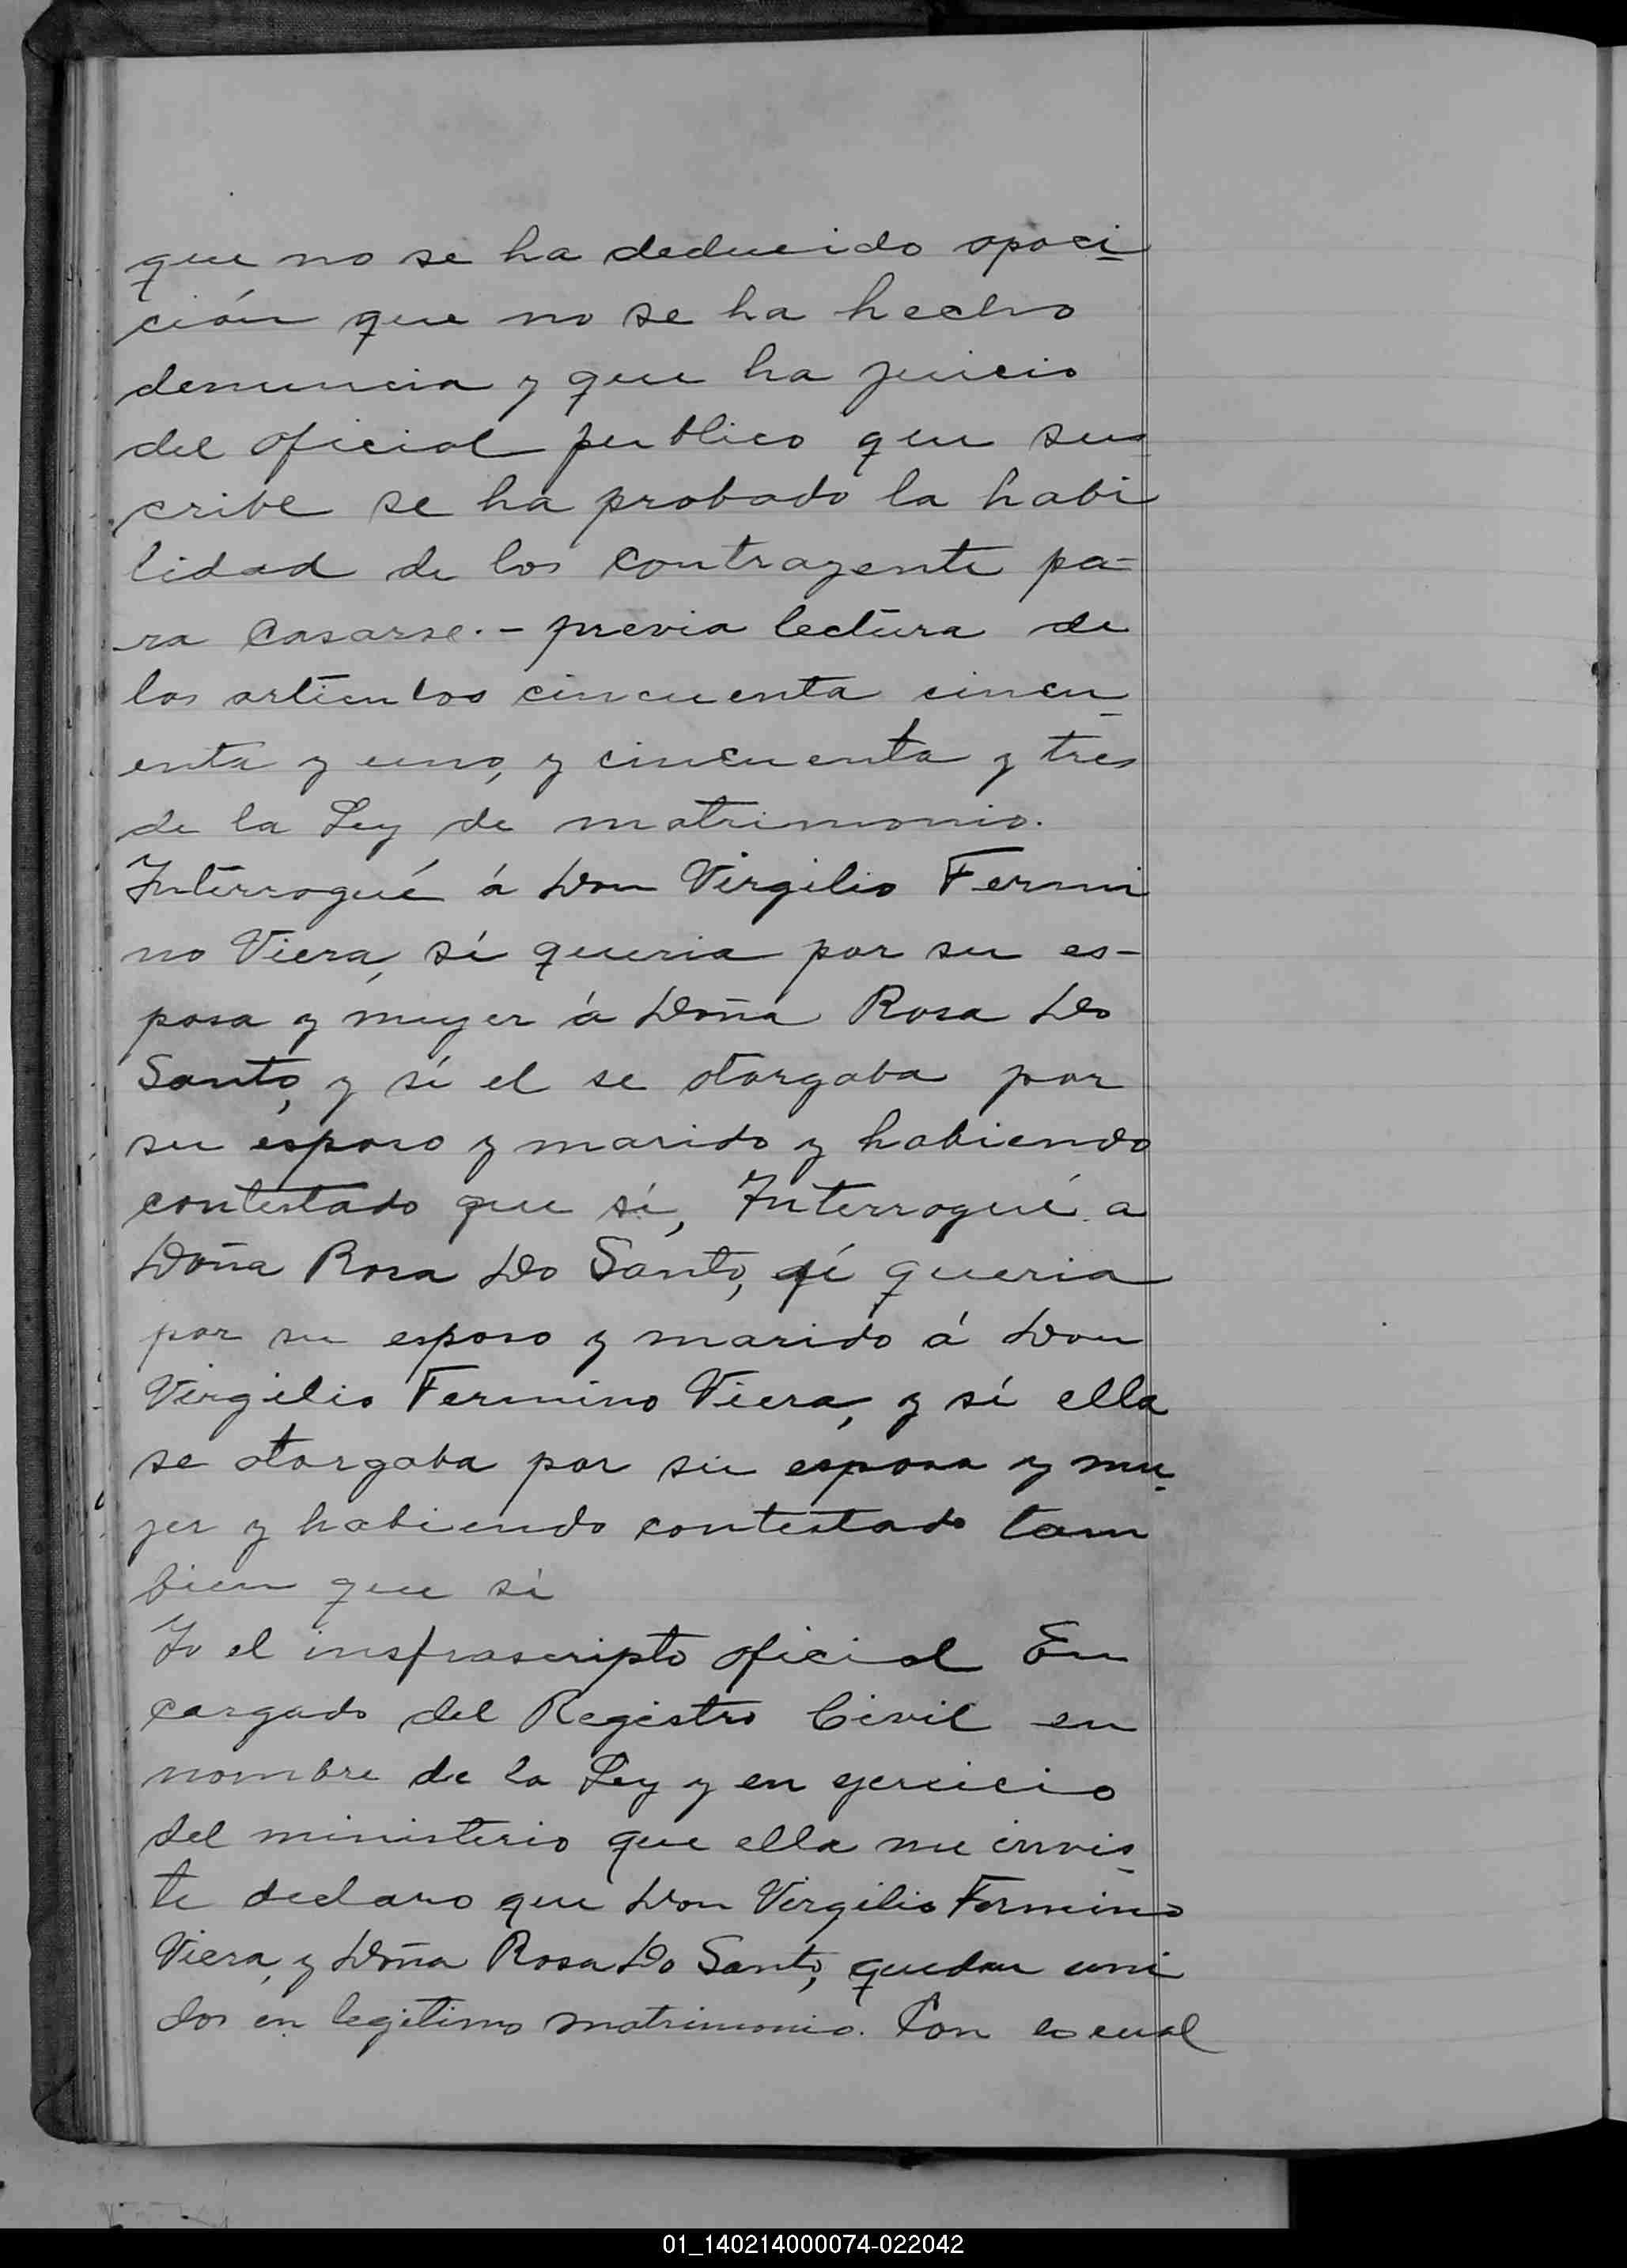 que no se ha deducido opoci
ción que no se ha hecho
denuncia y que ha juicio
del oficial publico que sus
cribe se ha probado la habi
lidad de los contrayente pa=
ra casarse.- previa lectura de
los articulos cincuenta cincu_
enta y uno, y cincuenta y tres
de la Ley de matrimonio.
Interrogué á Don Virgilio Fermi
no Viera, sí queria por su es-
posa y mujer á Doña Rosa Do
Santo, y sí el se otorgaba por
su esposo y marido y habiendo
contestado que sí, Interrogué a
Doña Rosa Do Santo, sí queria
por su esposo y marido á Don
Virgilio Fermino Viera, y sí ella
se otorgaba por su esposa y mu_
jer y habiendo contestado tam
bien que sí
Yo el insfrascripto oficial En
cargado del Registro Civil en
nombre de la Ley y en ejercicio
del ministerio que ella me invis_
te declaro que Don Virgilio Fermino
Viera, y Doña Rosa Do Santo, quedan uni
dos en legitimo matrimonio. Con lo cual
01_140214000074-022042